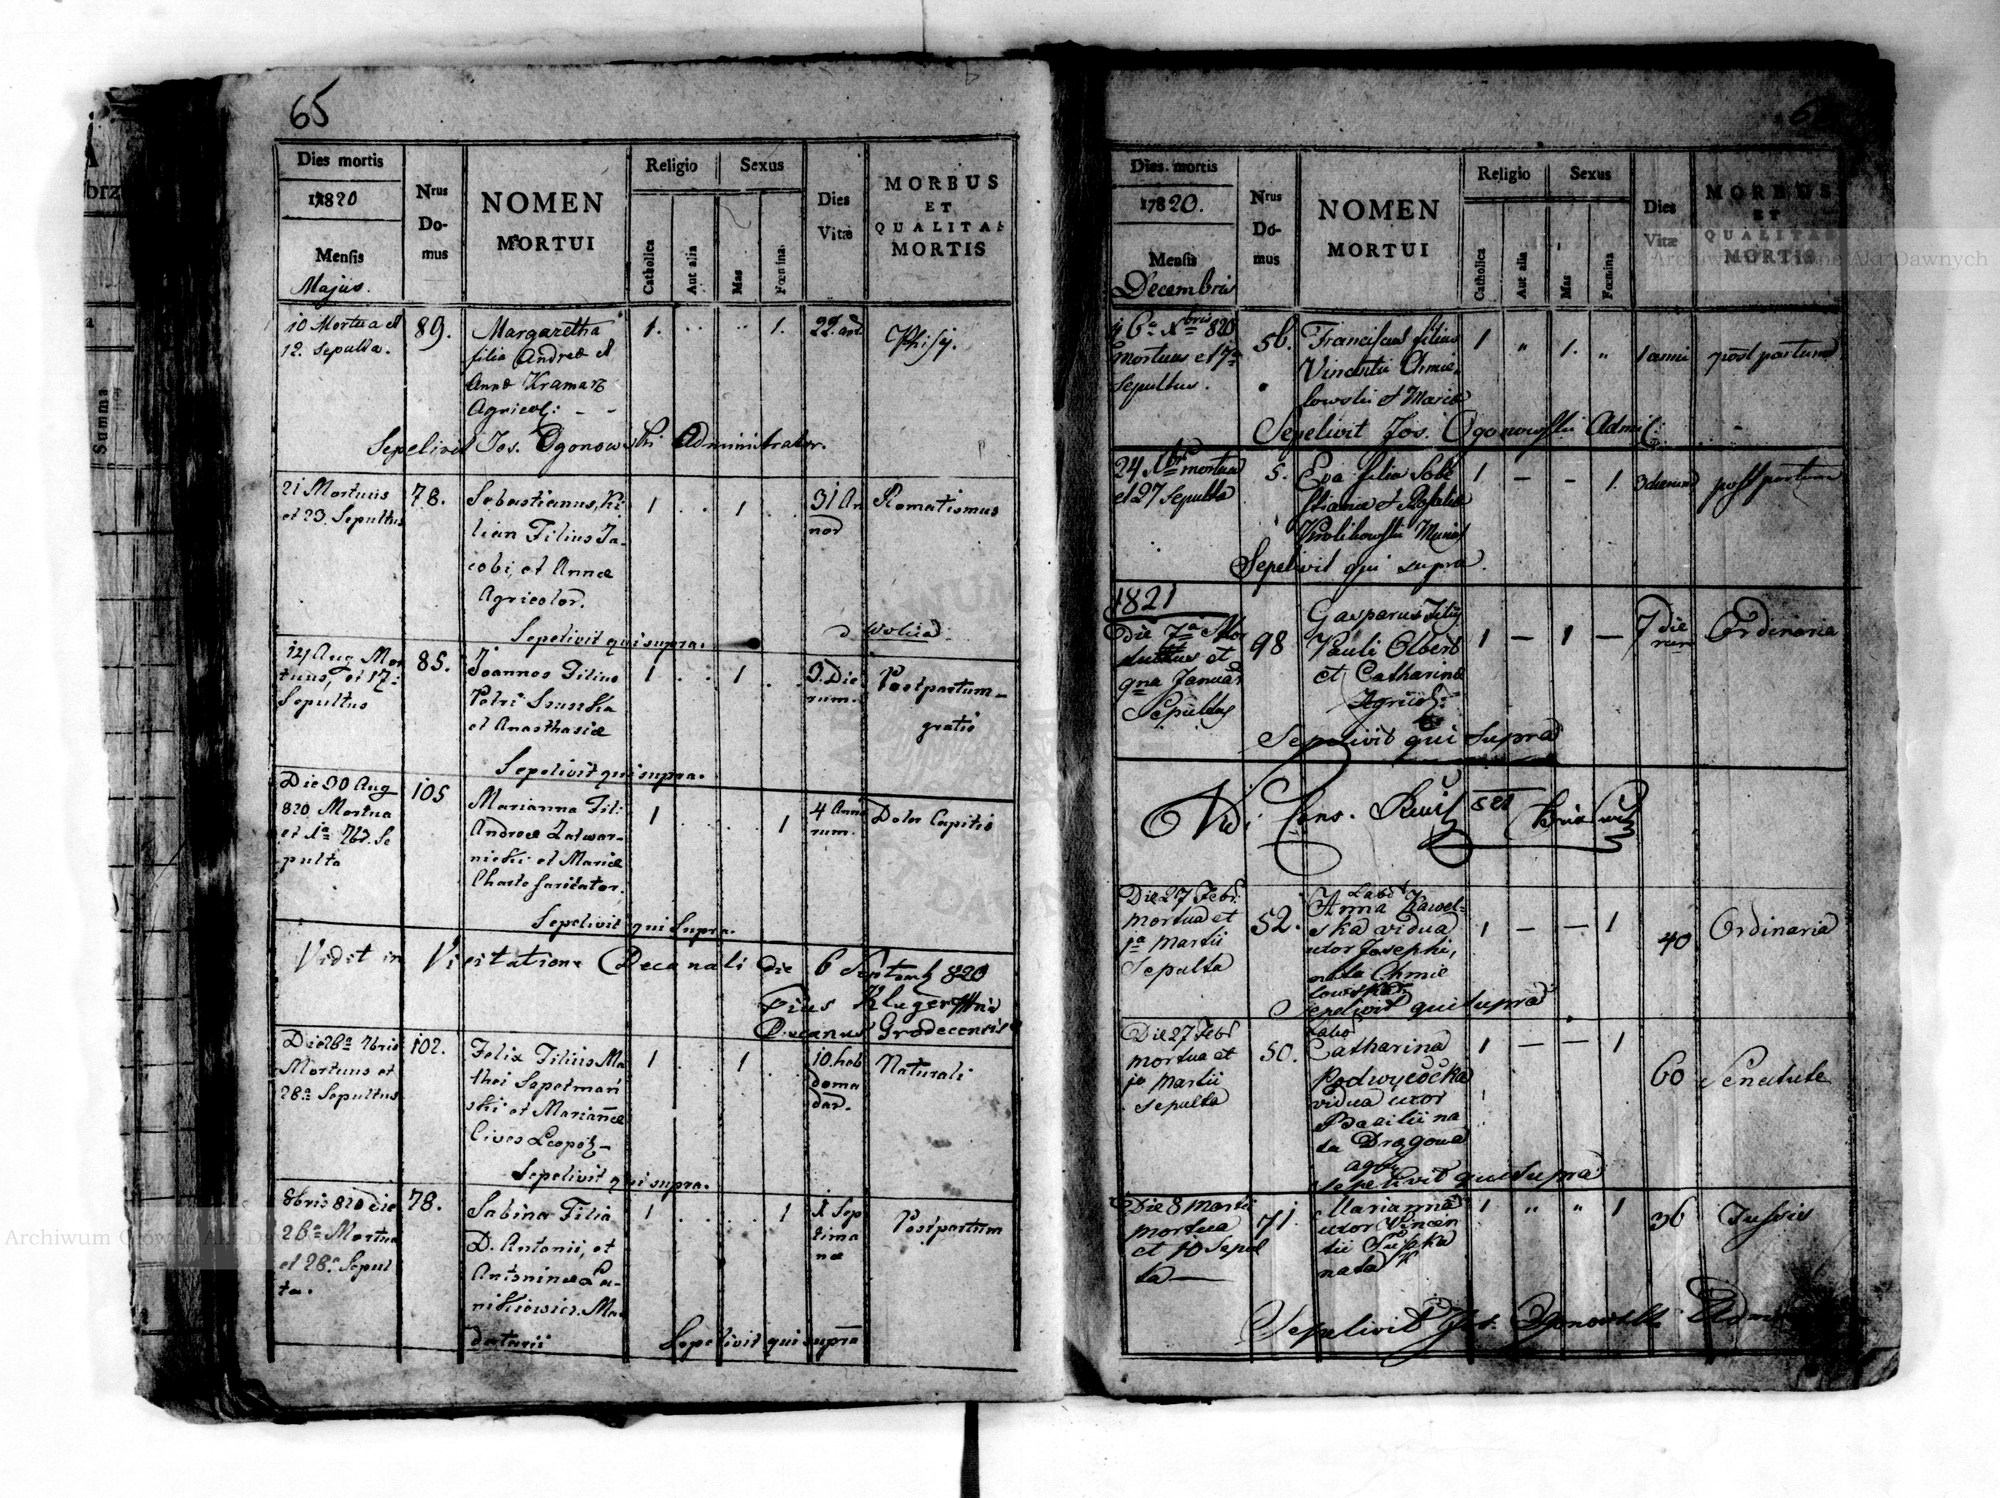 65
Dies mortis
1820
Mensis
Majus.
Nrus
Do-
mus
NOMEN
MORTUI
Religio
Catholica
Aut alia
Sexus
Mas
Fœmina
Dies
Vitæ
MORBUS
ET
QUALITAS
MORTIS
10 Mortua et
12. Sepulta.
89.
Margaretha
filia Andreæ et
Annæ Kramarz
Agricol:
1. 1.
22. an
Phisy.
Sepelivit Jos. Ogonowski Administrator.
21 Mortuus
et 23. Sepultus
78.
Sebastianus, Ki-
lian Filius Ja-
cobi, et Annæ
Agricolar.
1 1
31 An
nor
Romatismus
Sepelivit qui supra.
d. Wolica
14 Aug Mor
tuus, et 17:
Sepultus
85.
Joannes Filius
Petri Szustka
et Anasthasiæ
1 1
3. Die
rum.
Postpartum-
gratio
Sepelivit qui supra.
Die 30 Aug
820 Mortua
et 1a 7br. Se
pulta
105
Marianna Fil:
Andreæ Zatwar-
nicki et Mariæ
1 1
4 Anno
rum.
Dolor Capitis
Sepelivit qui supra.
Vidit in Visitatione Decanali die 6 Septemb 820
Pius Kluger
Decanus Grodecensis
Die 26a 7bris
Mortuus et
28a Sepultus
102.
Felix Filius Ma
thei Sapetmari
ski et Mariannæ
Cives Leopol-
1 1
10. heb
doma
dar.
Naturali
Sepelivit qui supra.
8bris 820 die
26a Mortua
et 28a Sepul
ta.
78.
Sabina Filia
D. Antonii, et
Antoninæ La-
nikiewicz. Man
datarii
1 1
1 Sep
tima
næ
Postpartum
Sepelivit qui supra
Dies mortis
1820.
Mensis
Decembris
Nrus
Do-
mus
NOMEN
MORTUI
Religio
Catholica
Aut alia
Sexus
Mas
Fœmina
Dies
Vitæ
MORBUS
ET
QUALITAS
MORTIS
16a Xbris 820
Mortuus et 17a
Sepultus.
56.
Franciscus filius
Vincentii Chmie-
lowski et Mariæ
1 " 1. "
1 anni
post partum
Sepelivit Jos. Ogonowski Adm
24 Xbris mortua
et 27 Sepulta
5.
Eva filia Seba
stiani et Rosaliæ
Krolikowski
1 - - 1.
3 dierum
post partum
Sepelivit qui supra
1821
die 7a Mor
tuus et
9na Januar
Sepultus
98
Gasparus Filius
Pauli Olbert
et Catharinæ
Agricol:
1 — 1 —
7 die
rum
Ordinaria
Sepelivit qui supra
821
Die 27 Febr.
mortua et
1a Martii
Sepulta
52.
Labor
Anna Kawel-
ska vidua
uxor Josephi,
nata Chmie
lowska
1 — — 1
40
Ordinaria
Sepelivit qui supra
Die 27 Febr
mortua et
1a Martii
sepulta
50.
Labor
Catharina
Podwysocka
vidua uxor
Basilii na
ta Dragona
agr.
1 — — 1
60
Senectute
Sepelivit qui supra
Die 8 Martii
mortua
et 10 Sepul
ta —
71
Marianna
uxor Vincen
tii
nata
1 " " 1
36
Tussis
Sepelivit Jos. Ogonowski Adm
Summa
Archiwum Główne Akt Dawnych
Archiwum Główne Akt Dawnych